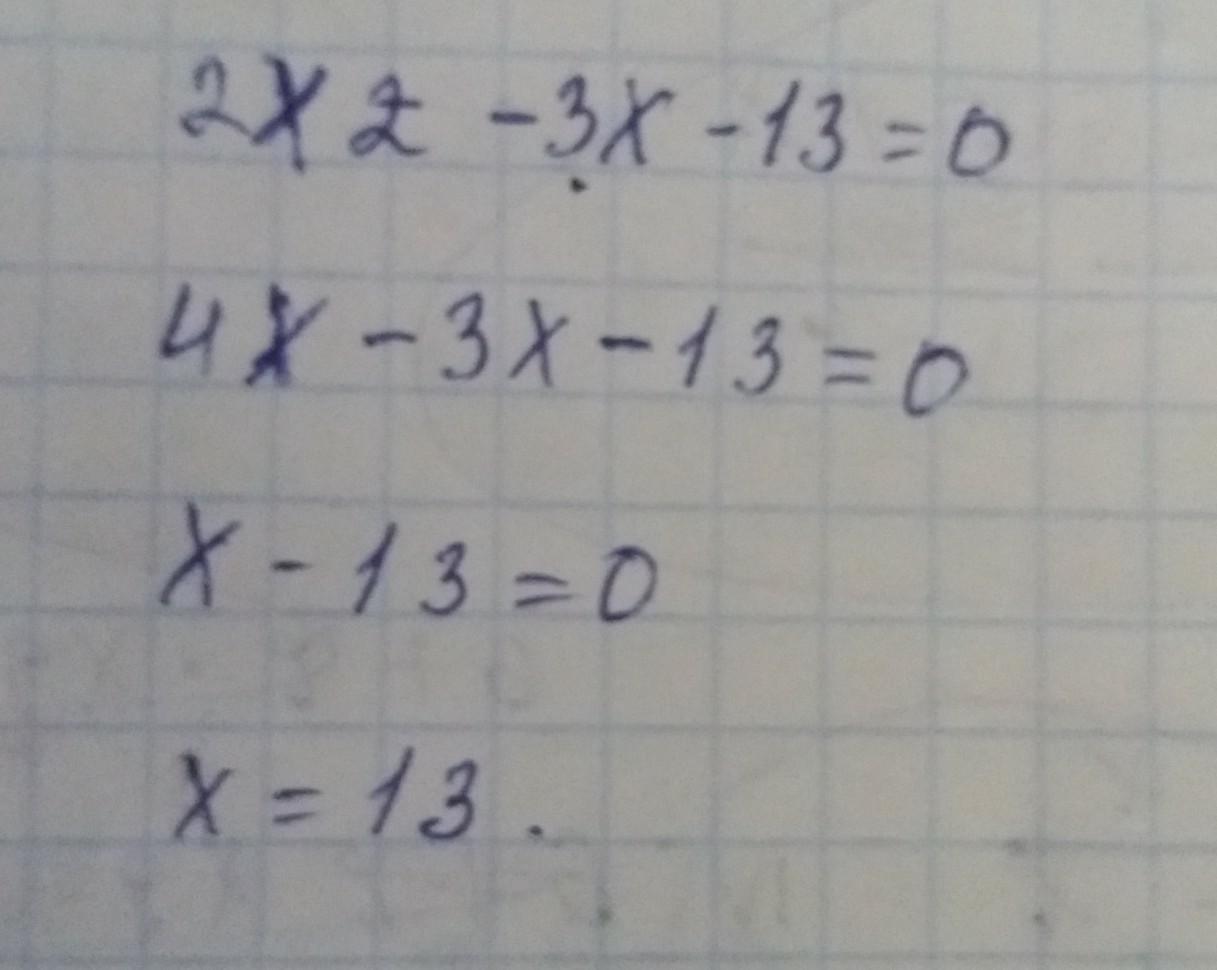 2x2 -3x -13=0
4x -3x-13=0
x-13=0
x=13.